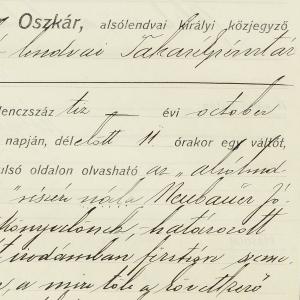 Oszkár, alsólendvai királyi közjegyző
lendvai Takarékpénztár
lenczszáz tiz évi october
napján, délelőtt 11 órakor egy váltót,
ulsó oldalon olvasható az "alsólend
részen nála Neubauer Jó
könyvelőnek, határozott
irodámban fizetésre
a mire tőle a következő